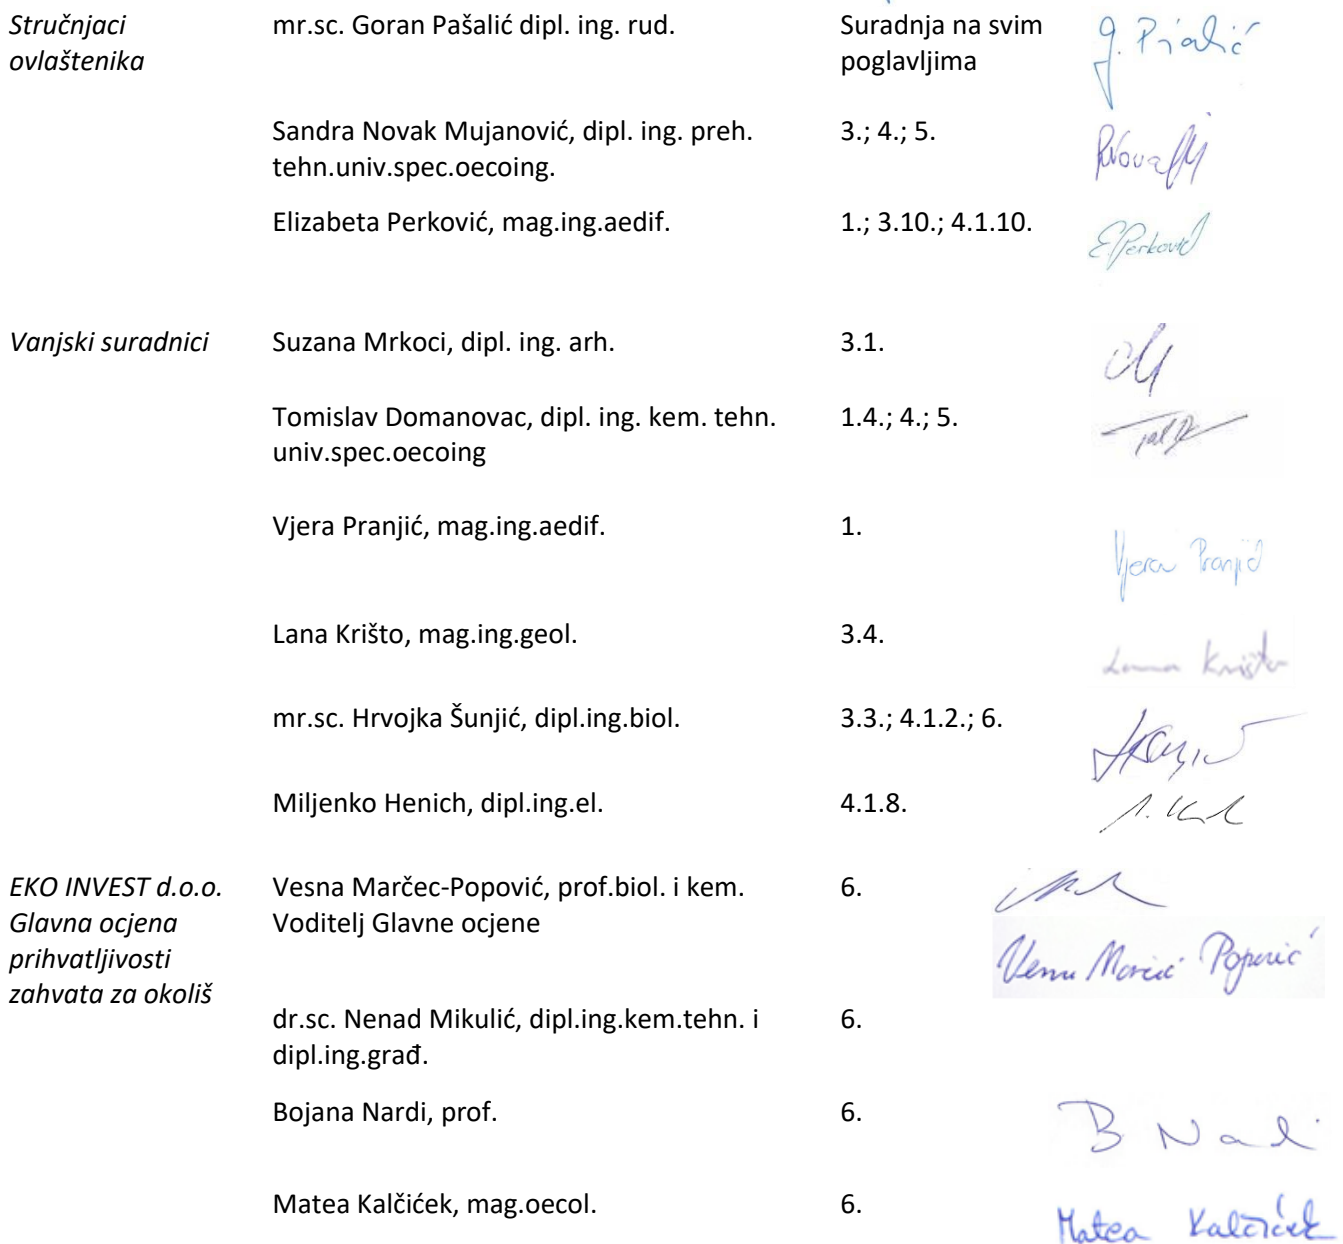 Stručnjaci ovlaštenika
mr.sc. Goran Pašalić dipl. ing. rud.
Suradnja na svim poglavljima
Sandra Novak Mujanović, dipl. ing. preh. tehn.univ.spec.oecoing.
3.; 4.; 5.
Elizabeta Perković, mag.ing.aedif.
1.; 3.10.; 4.1.10.
E. Perković
Vanjski suradnici
Suzana Mrkoci, dipl. ing. arh.
3.1.
Tomislav Domanovac, dipl. ing. kem. tehn. univ.spec.oecoing
1.4.; 4.; 5.
Vjera Pranjić, mag.ing.aedif.
1.
Vjera Pranjić
Lana Krišto, mag.ing.geol.
3.4.
Lana Krišto
mr.sc. Hrvojka Šunjić, dipl.ing.biol.
3.3.; 4.1.2.; 6.
Miljenko Henich, dipl.ing.el.
4.1.8.
EKO INVEST d.o.o.
Glavna ocjena
prihvatljivosti
zahvata za okoliš
Vesna Marčec-Popović, prof.biol. i kem.
Voditelj Glavne ocjene
6.
Vesna Marčec Popović
dr.sc. Nenad Mikulić, dipl.ing.kem.tehn. i
dipl.ing.građ.
6.
Bojana Nardi, prof.
6.
B Nardi
Matea Kalčićek, mag.oecol.
6.
Matea Kalčićek